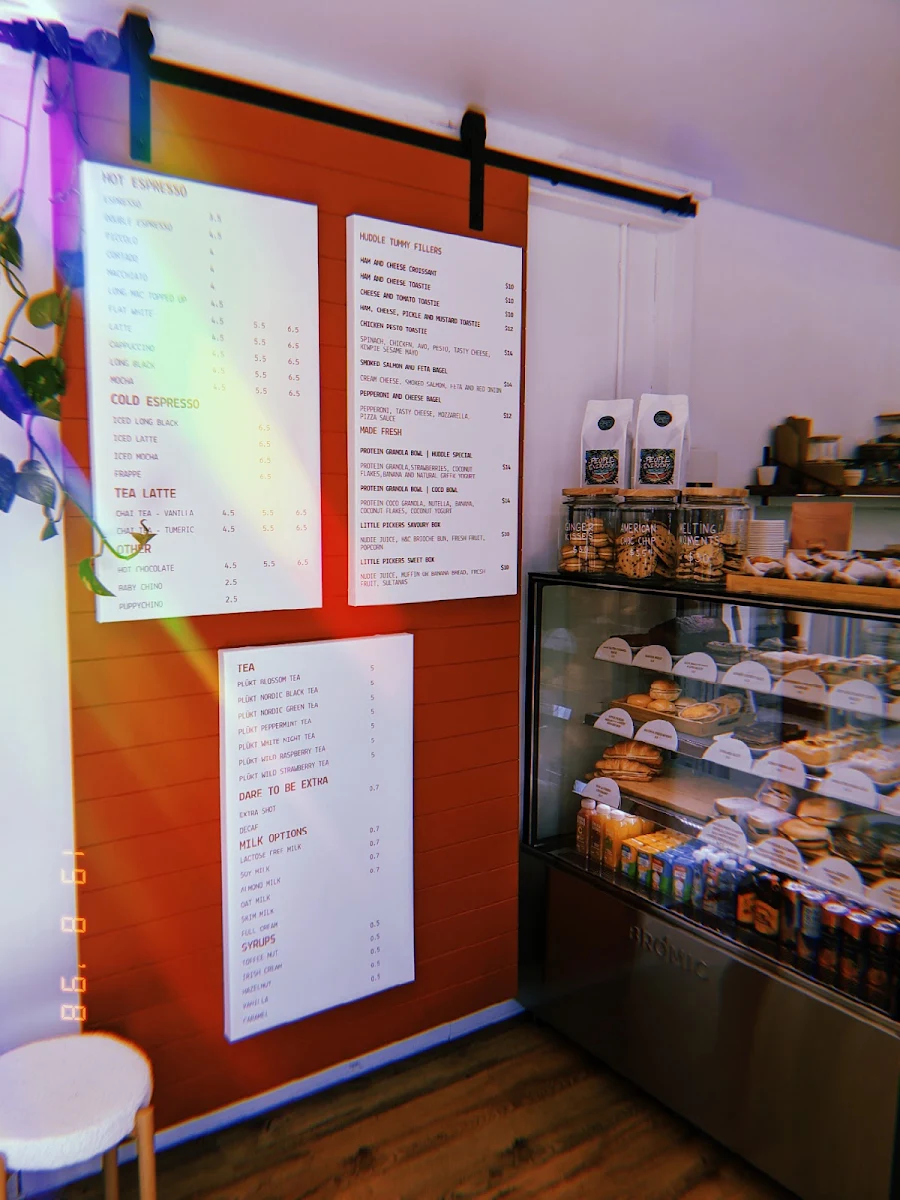 HOT ESPRESSO
ESPRESSO 3.5
DOUBLE ESPRESSO 4.5
PICCOLO 4
CONTADO 4
MACCHIATO 4
LONG MAC TOPPED UP 4.5
FLAT WHITE 4.5 5.5 6.5
LATTE 4.5 5.5 6.5
CAPPUCCINO 4.5 5.5 6.5
LONG BLACK 4.5 5.5 6.5
MOCHA 4.5 5.5 6.5
COLD ESPRESSO
ICED LONG BLACK 6.5
ICED LATTE 6.5
ICED MOCHA 6.5
FRAPPE 6.5
TEA LATTE
CHAI TEA - VANILLA 4.5 5.5 6.5
CHAI TEA - TUMERIC 4.5 5.5 6.5
OTHER
HOT CHOCOLATE 4.5 5.5 6.5
BABY CHINO 2.5
PUPPYCHINO 2.5
HUDDLE TUMMY FILLERS
HAM AND CHEESE CROISSANT $10
HAM AND CHEESE TOASTIE $10
CHEESE AND TOMATO TOASTIE $10
HAM, CHEESE, PICKLE AND MUSTARD TOASTIE $12
CHICKEN PESTO TOASTIE $14
SPINACH, CHICKEN, AVO, PESTO, TASTY CHEESE,
KEWPIE SESAME MAYO
SMOKED SALMON AND FETA BAGEL $14
CREAM CHEESE, SMOKED SALMON, FETA AND RED ONION
PEPPERONI AND CHEESE BAGEL $12
PEPPERONI, TASTY CHEESE, MOZZARELLA,
PIZZA SAUCE
MADE FRESH
PROTEIN GRANOLA BOWL | HUDDLE SPECIAL $14
PROTEIN GRANOLA,STRAWBERRIES, COCONUT
FLAKES,BANANA AND NATURAL CAFFE YOGHURT
PROTEIN GRANOLA BOWL | COCO BOWL $14
PROTEIN COCO GRANOLA, NUTELLA, BANANA,
COCONUT FLAKES, COCONUT YOGURT
LITTLE PICKERS SAVOURY BOX $10
NUDIE JUICE, H&C BRIOCHE BUN, FRESH FRUIT,
POPCORN
LITTLE PICKERS SWEET BOX $10
NUDIE JUICE, MUFFIN OR BANANA BREAD, FRESH
FRUIT, SULTANAS
TEA
PLÜKT BLOSSOM TEA 5
PLÜKT NORDIC BLACK TEA 5
PLÜKT NORDIC GREEN TEA 5
PLÜKT PEPPERMINT TEA 5
PLÜKT WHITE NIGHT TEA 5
PLÜKT WILD RASPBERRY TEA 5
PLÜKT WILD STRAWBERRY TEA 5
DARE TO BE EXTRA
EXTRA SHOT 0.7
DECAF
MILK OPTIONS
LACTOSE FREE MILK 0.7
SOY MILK 0.7
ALMOND MILK 0.7
OAT MILK
SKIM MILK
FULL CREAM
SYRUPS
TOFFEE NUT 0.5
IRISH CREAM 0.5
HAZELNUT 0.5
VANILLA 0.5
CARAMEL
PEOPLE
EVERYDAY
PEOPLE
EVERYDAY
GINGER
KISSES
AMERICAN
CHOC CHIP
MELTING
MOMENTS
BRÓMIC
19 8 '98